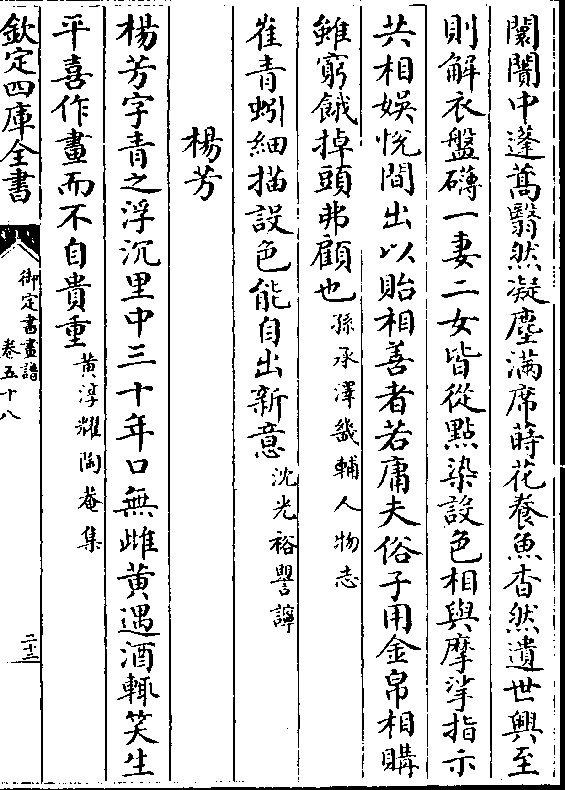 闤闠中蓬蒿翳然凝塵滿席蒔花養魚杳然遺世興至
則解衣盤礴一妻二女皆從點染設色相與摩挲指示
共相娛悅間出以貽相善者若庸夫俗子用金帛相購
雖窮餓掉頭弗顧也孫承澤畿輔人物志
崔青蚓細描設色能自出新意沈光裕譻諢
楊芳
楊芳字青之浮沉里中三十年口無雌黃遇酒輒笑生
平喜作畫而不自貴重黃淳耀陶菴集
欽定四庫全書
御定書畫譜
卷五十八
二十二